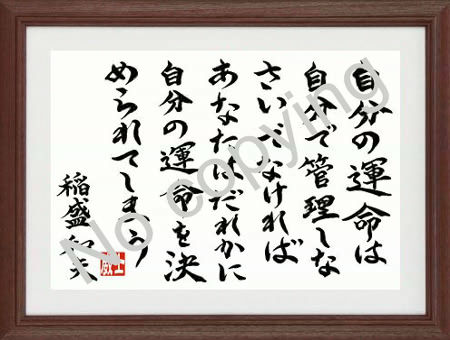 自分の運命は
自分で管理しな
さいでなければ
あなたはだれかに
自分の運命を決
められてしまう
稲盛和夫
No copying